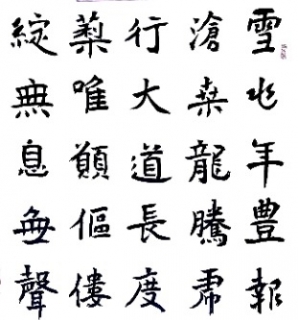 雪兆年豊報
滄桒龍騰虎
行大道長度
蔾唯願傴僂
綻無息無聲